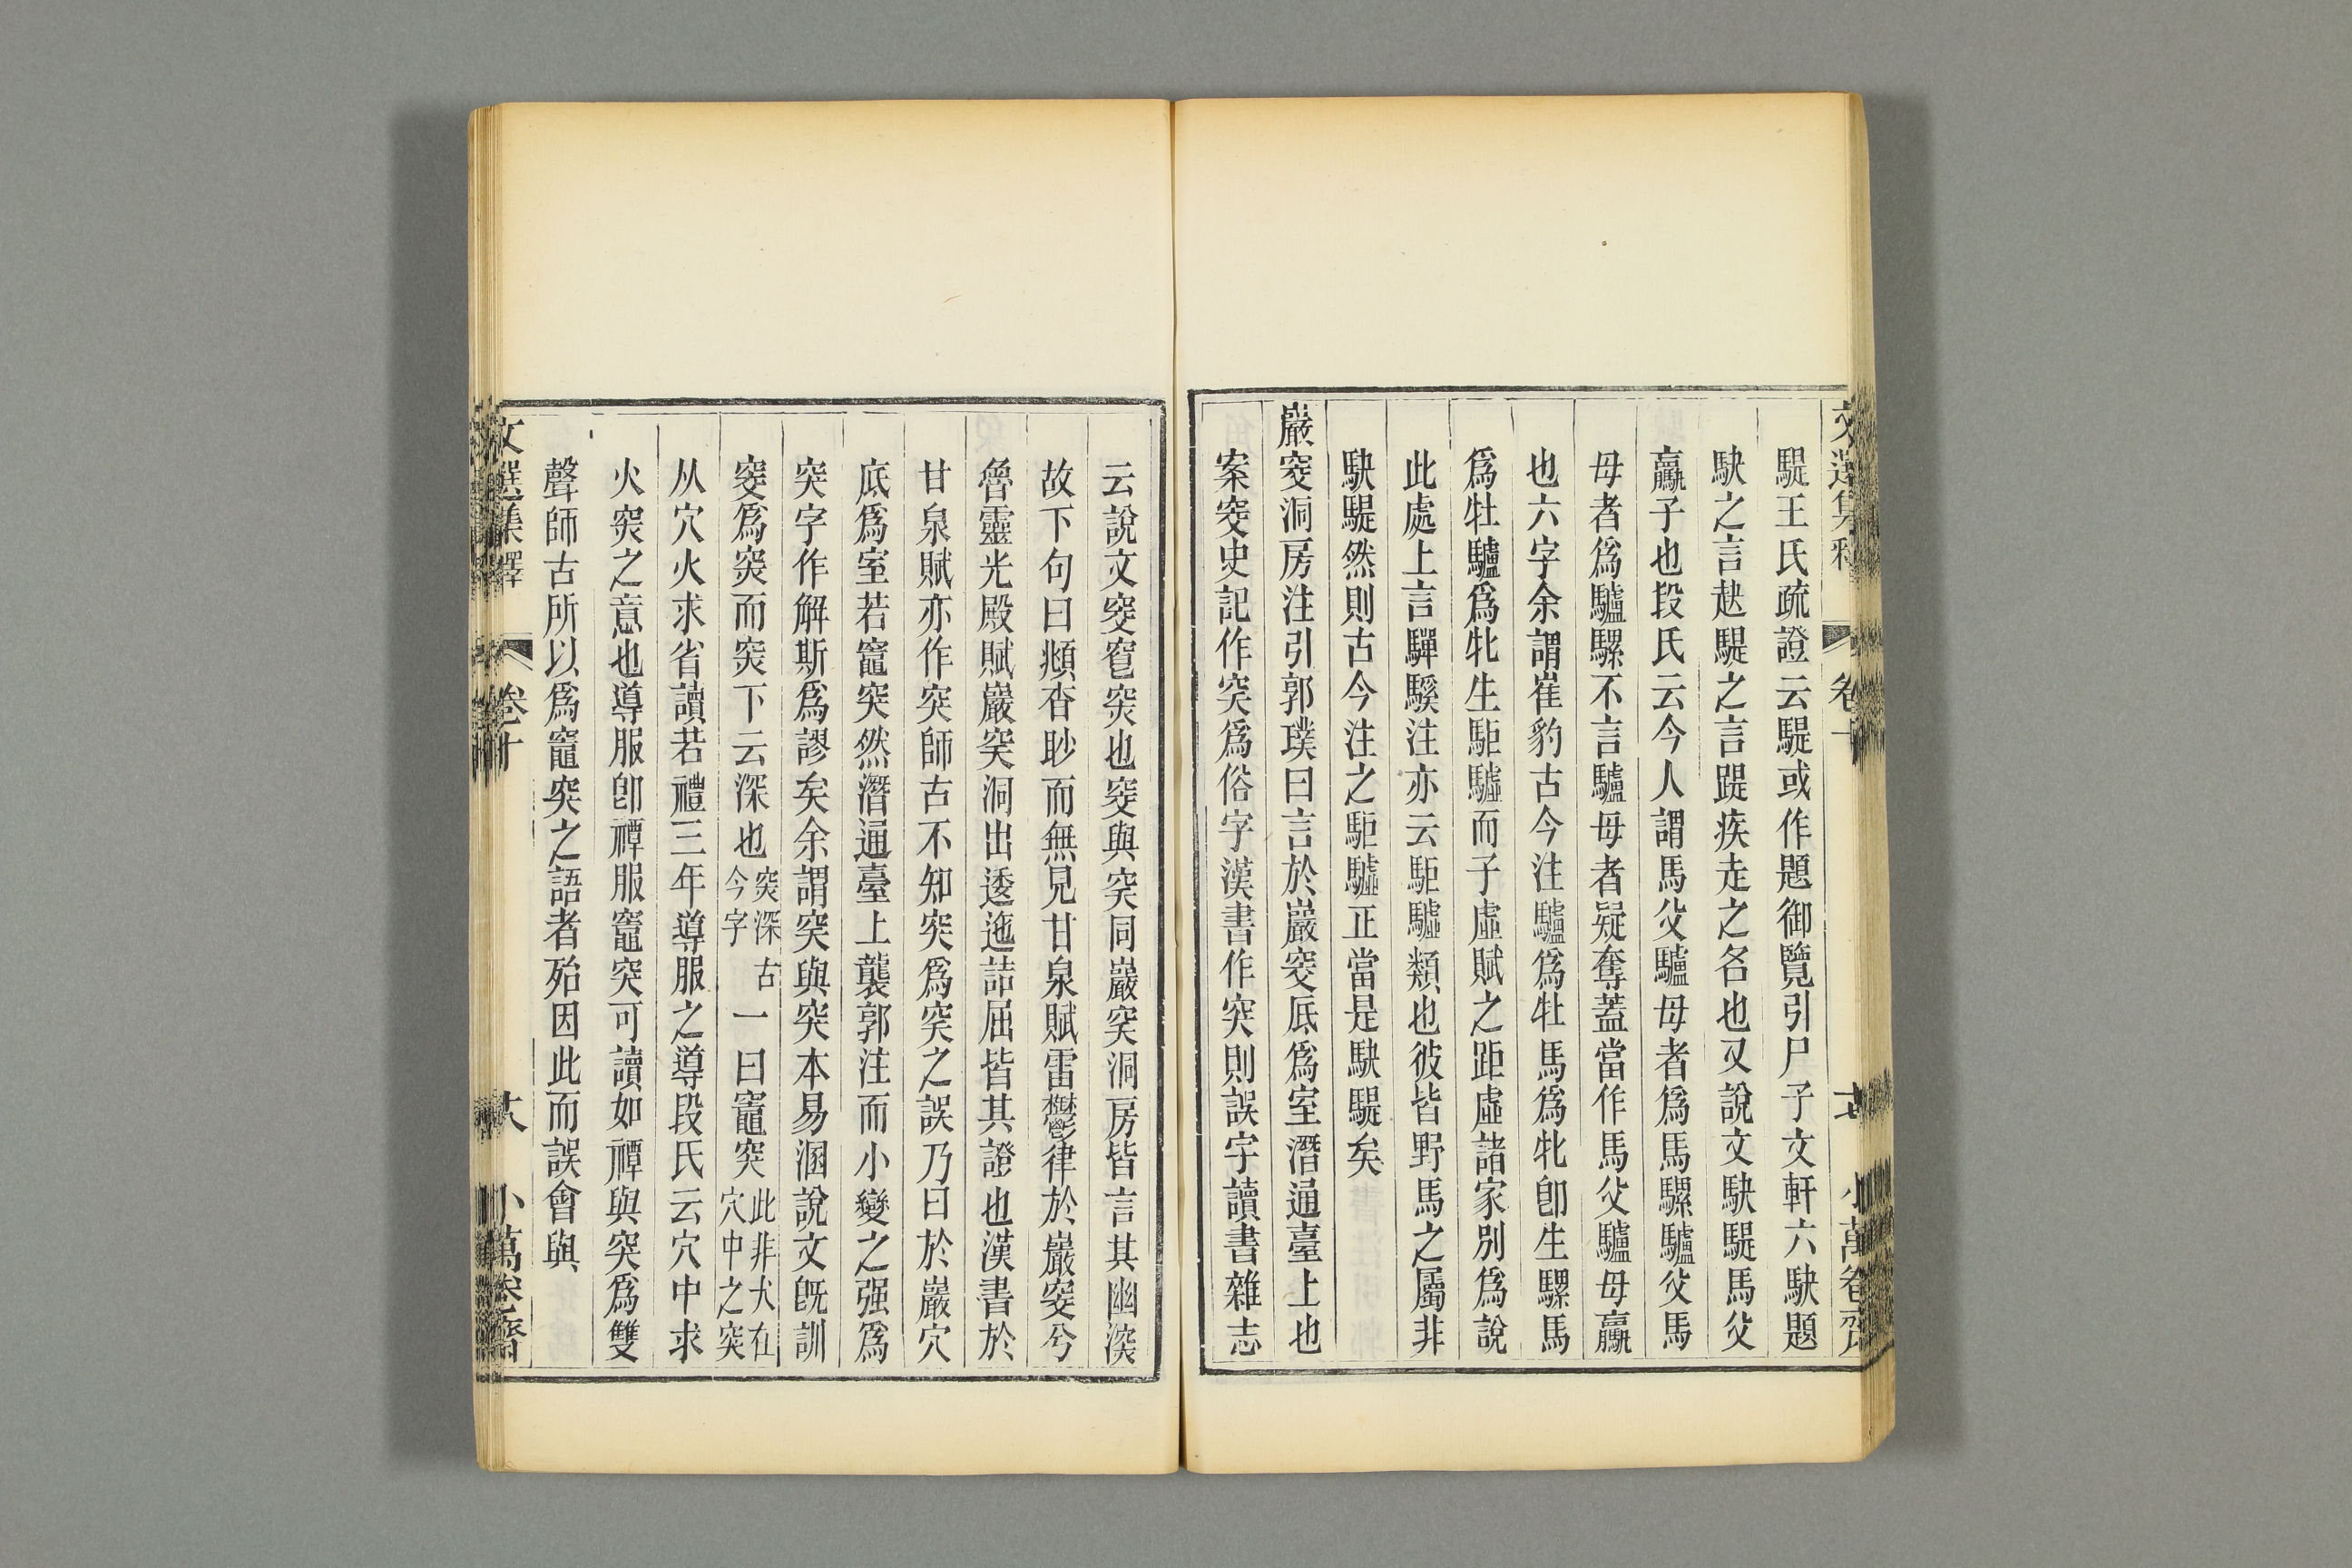 文選集釋 卷十 十七 小萬卷齋
騠王氏疏證云騠或作題御覽引尸子文軒六駃題
駃之言趹騠之言踶疾走之名也又說文駃騠馬父
驘子也段氏云今人謂馬父驢母者爲馬騾驢父馬
母者爲驢騾不言驢母者疑奪蓋當作馬父驢母驘
也六字余謂崔豹古今注驢爲牡馬爲牝卽生騾馬
爲牡驢爲牝生駏驉而子虛賦之距虛諸家別爲說
此處上言驒騱注亦云駏驉類也彼皆野馬之屬非
駃騠然則古今注之駏驉正當是駃騠矣
巖窔洞房注引郭璞曰言於巖窔底爲室潛通臺上也
案窔史記作突爲俗字漢書作突則誤字讀書雜志
云說文窔窇窔也窔與突同巖突洞房皆言其幽深
故下句曰頫杳眇而無見甘泉賦雷鬱律於巖窔兮
魯靈光殿賦巖突洞出逶迤詰屈皆其證也漢書於
甘泉賦亦作突師古不知突爲突之誤乃曰於巖穴
底爲室若竈突然潛通臺上襲郭注而小變之强爲
突字作解斯爲謬矣余謂突與突本易溷說文旣訓
窔爲突而突下云深也突深古今字一曰竈突此非犬在穴中之突
从穴火求省讀若禮三年導服之導段氏云穴中求
火突之意也導服卽禫服竈突可讀如禫與突爲雙
聲師古所以爲竈突之語者殆因此而誤會與
文選集釋 卷十 十八 小萬卷齋